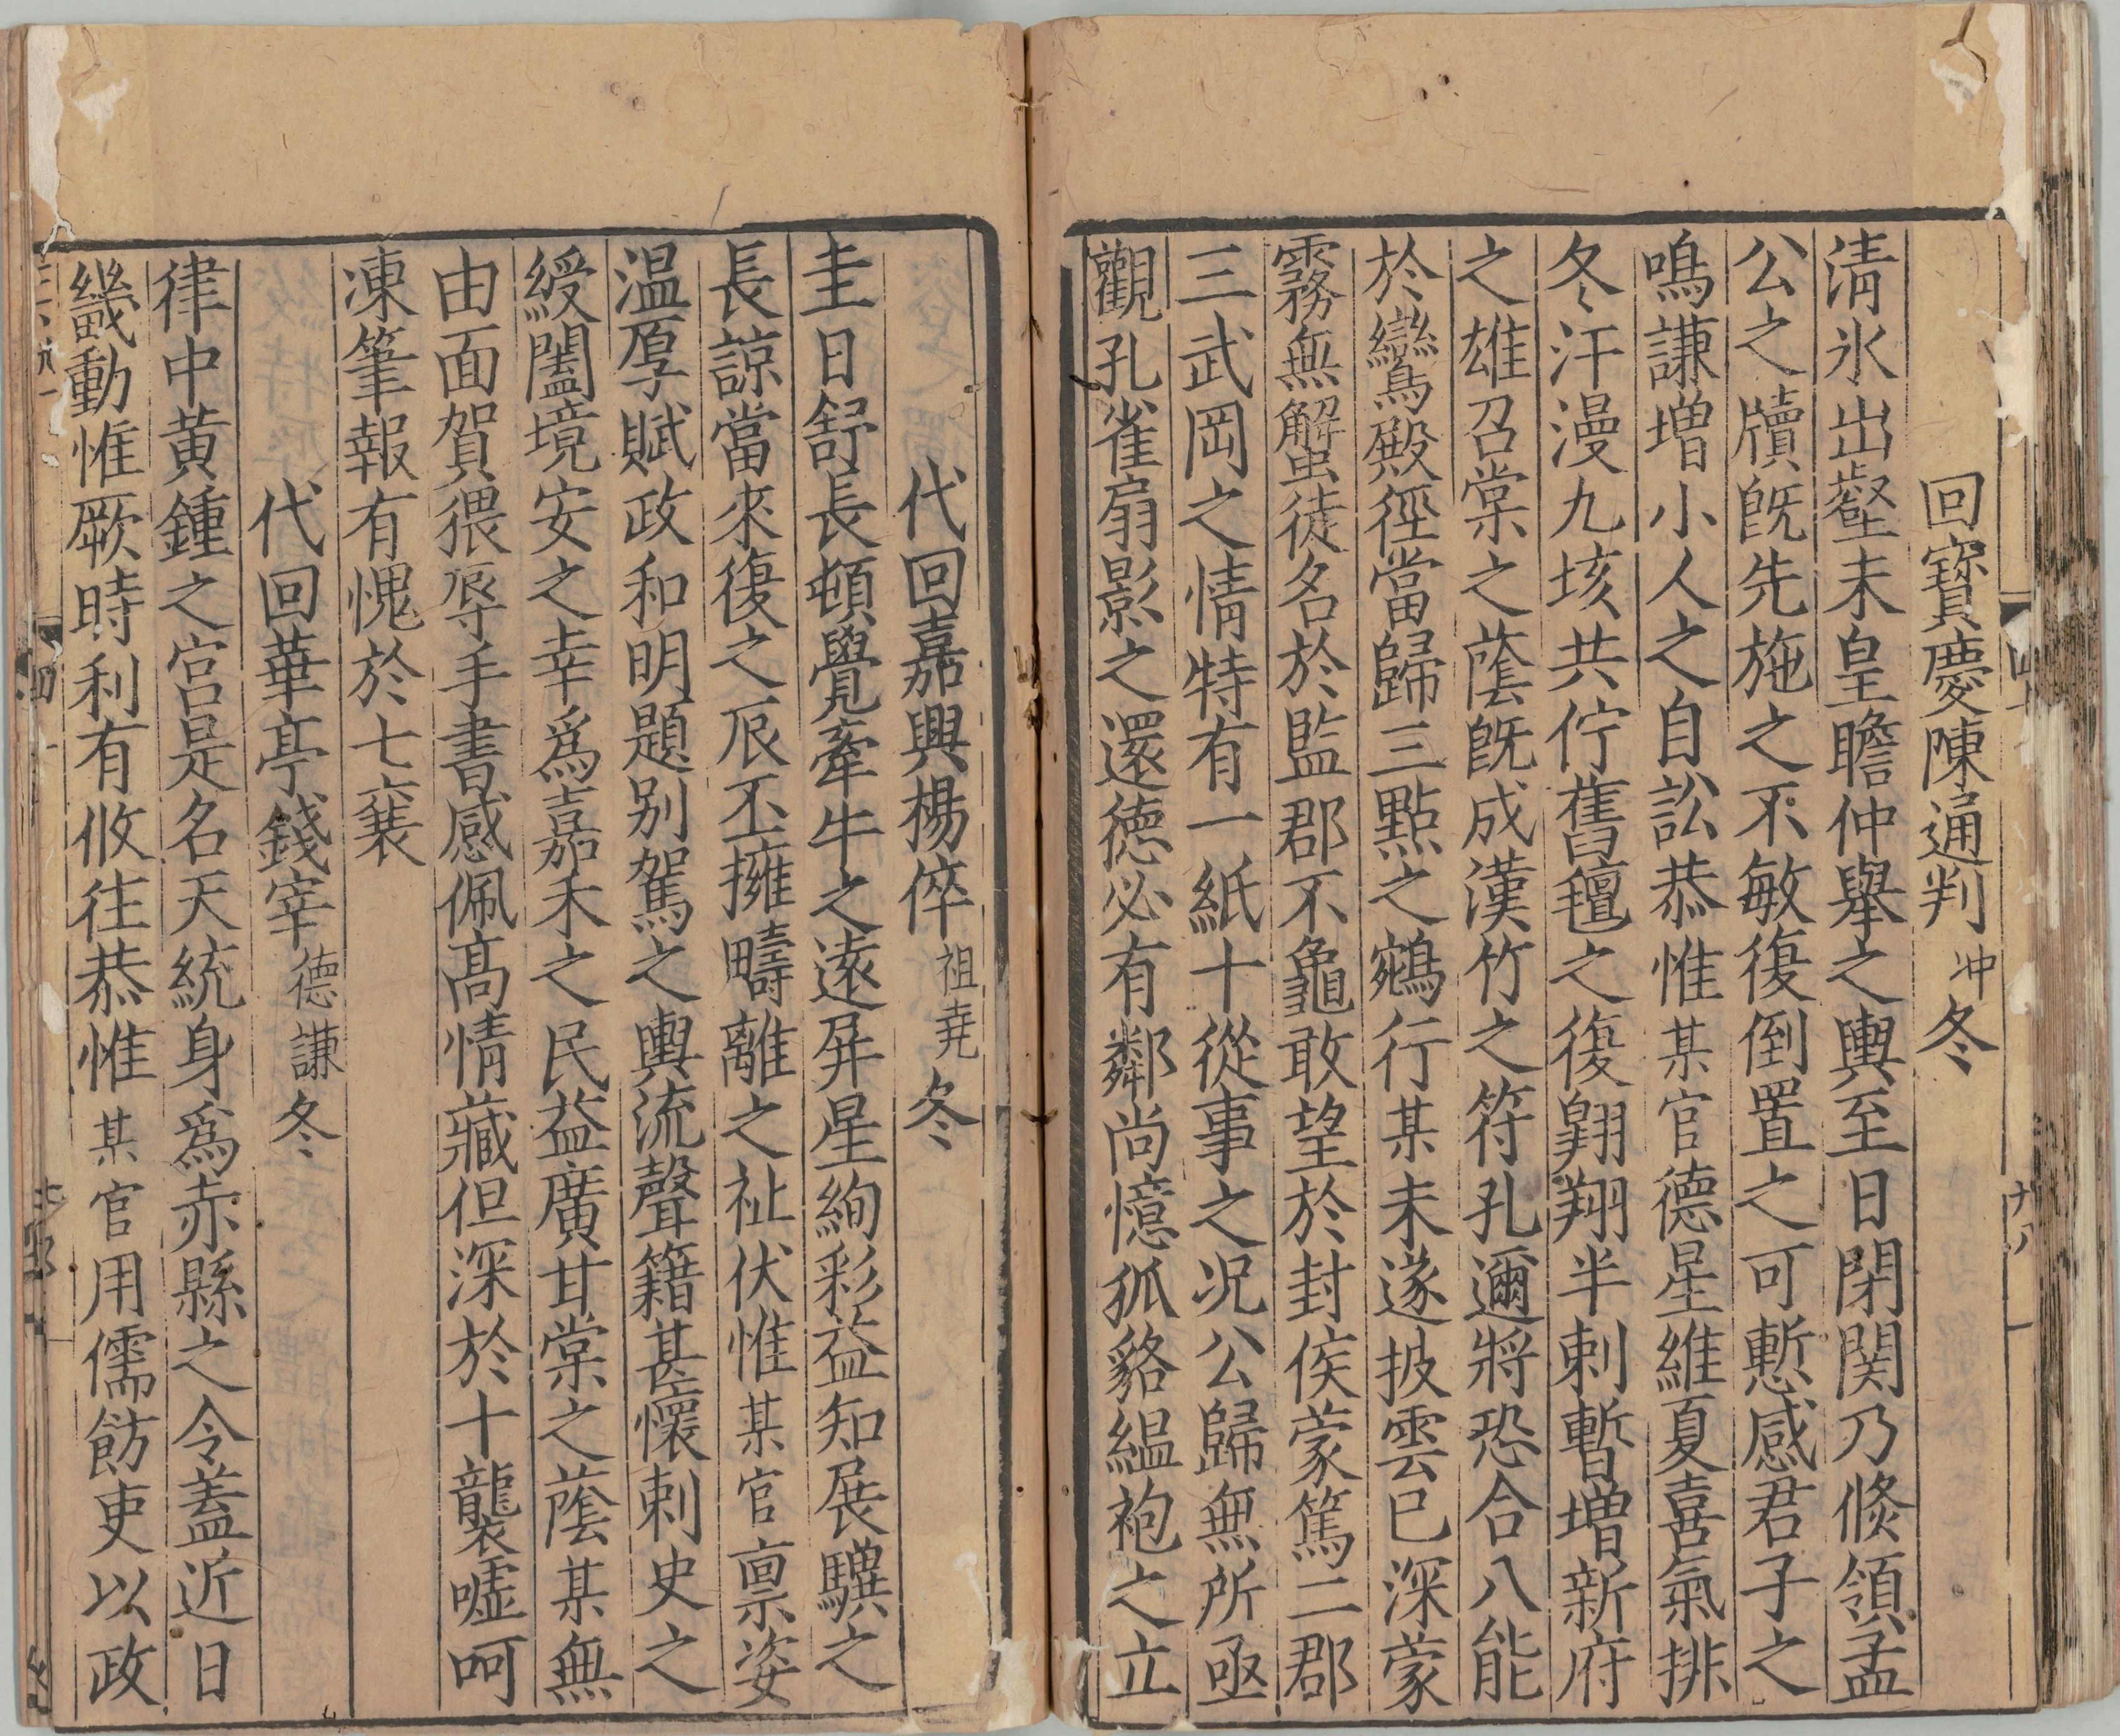 回寳慶陳通判冲冬
淸氷出壑未皇瞻仲舉之輿至日閉関乃倏領孟
公之牘旣先施之不敏復倒置之可慙感君子之
鳴謙増小人之自訟恭惟某官德星維夏喜氣排
冬汗漫九垓共佇舊氊之復翺翔半刺暫増新府
之雄召棠之蔭旣成漢竹之符孔邇將恐合八能
於鸞殿徑當歸三點之鵷行某未遂披雲已深蒙
霧無蟹徒名於監郡不龜敢望於封侯蒙篤二郡
三武岡之情特有一紙十從事之况公歸無所亟
觀孔雀扇影之還德必有鄰尚憶狐貉緼袍之立
代回嘉興楊倅祖尭冬
圭日舒長頓覺牽牛之遠屏星絢彩益知展驥之
長諒當來復之辰丕擁疇離之祉伏惟某官禀姿
温厚賦政和明題别駕之輿流聲籍甚懷刺史之
綬闔境安之幸爲嘉禾之民益廣甘棠之蔭某無
由面賀猥辱手書感佩髙情藏但深於十襲嘘呵
凍筆報有愧於七襄
代回華亭錢宰德謙冬
律中黄鍾之宫是名天統身爲赤縣之令蓋近日
畿動惟厥時利有攸往恭惟某官用儒飭吏以政